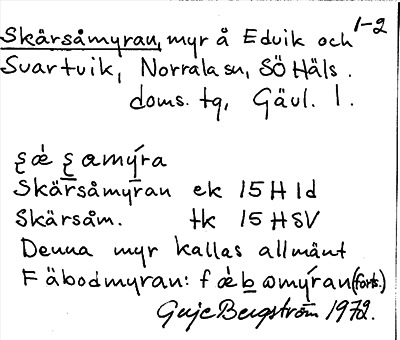 1-2
Skårsåmyran, myr å Edvik och
Svartvik, Norrala sn, SÖ Häls.
doms. tg, Gävl. l.
Skärsåmyran ek 15 H 1d
Skärsåm. tk 15 H SV
Denna myr kallas allmänt
Fäbodmyran: (forts.)
Guje Bergström 1972.